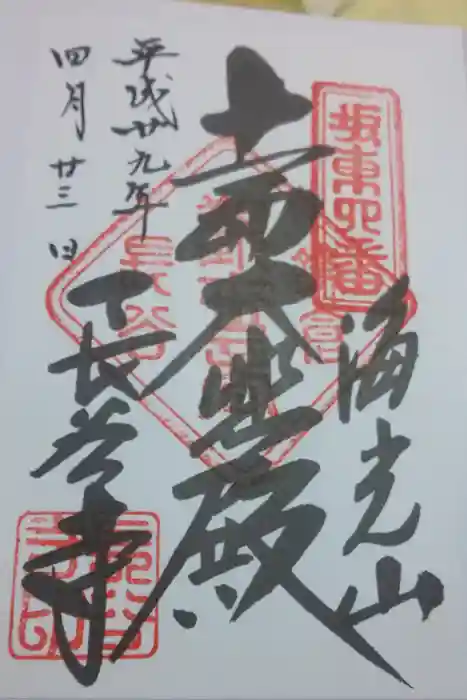 坂東四番
海光山
十一面大悲殿
長谷寺
平成廿九年
四月廿三日